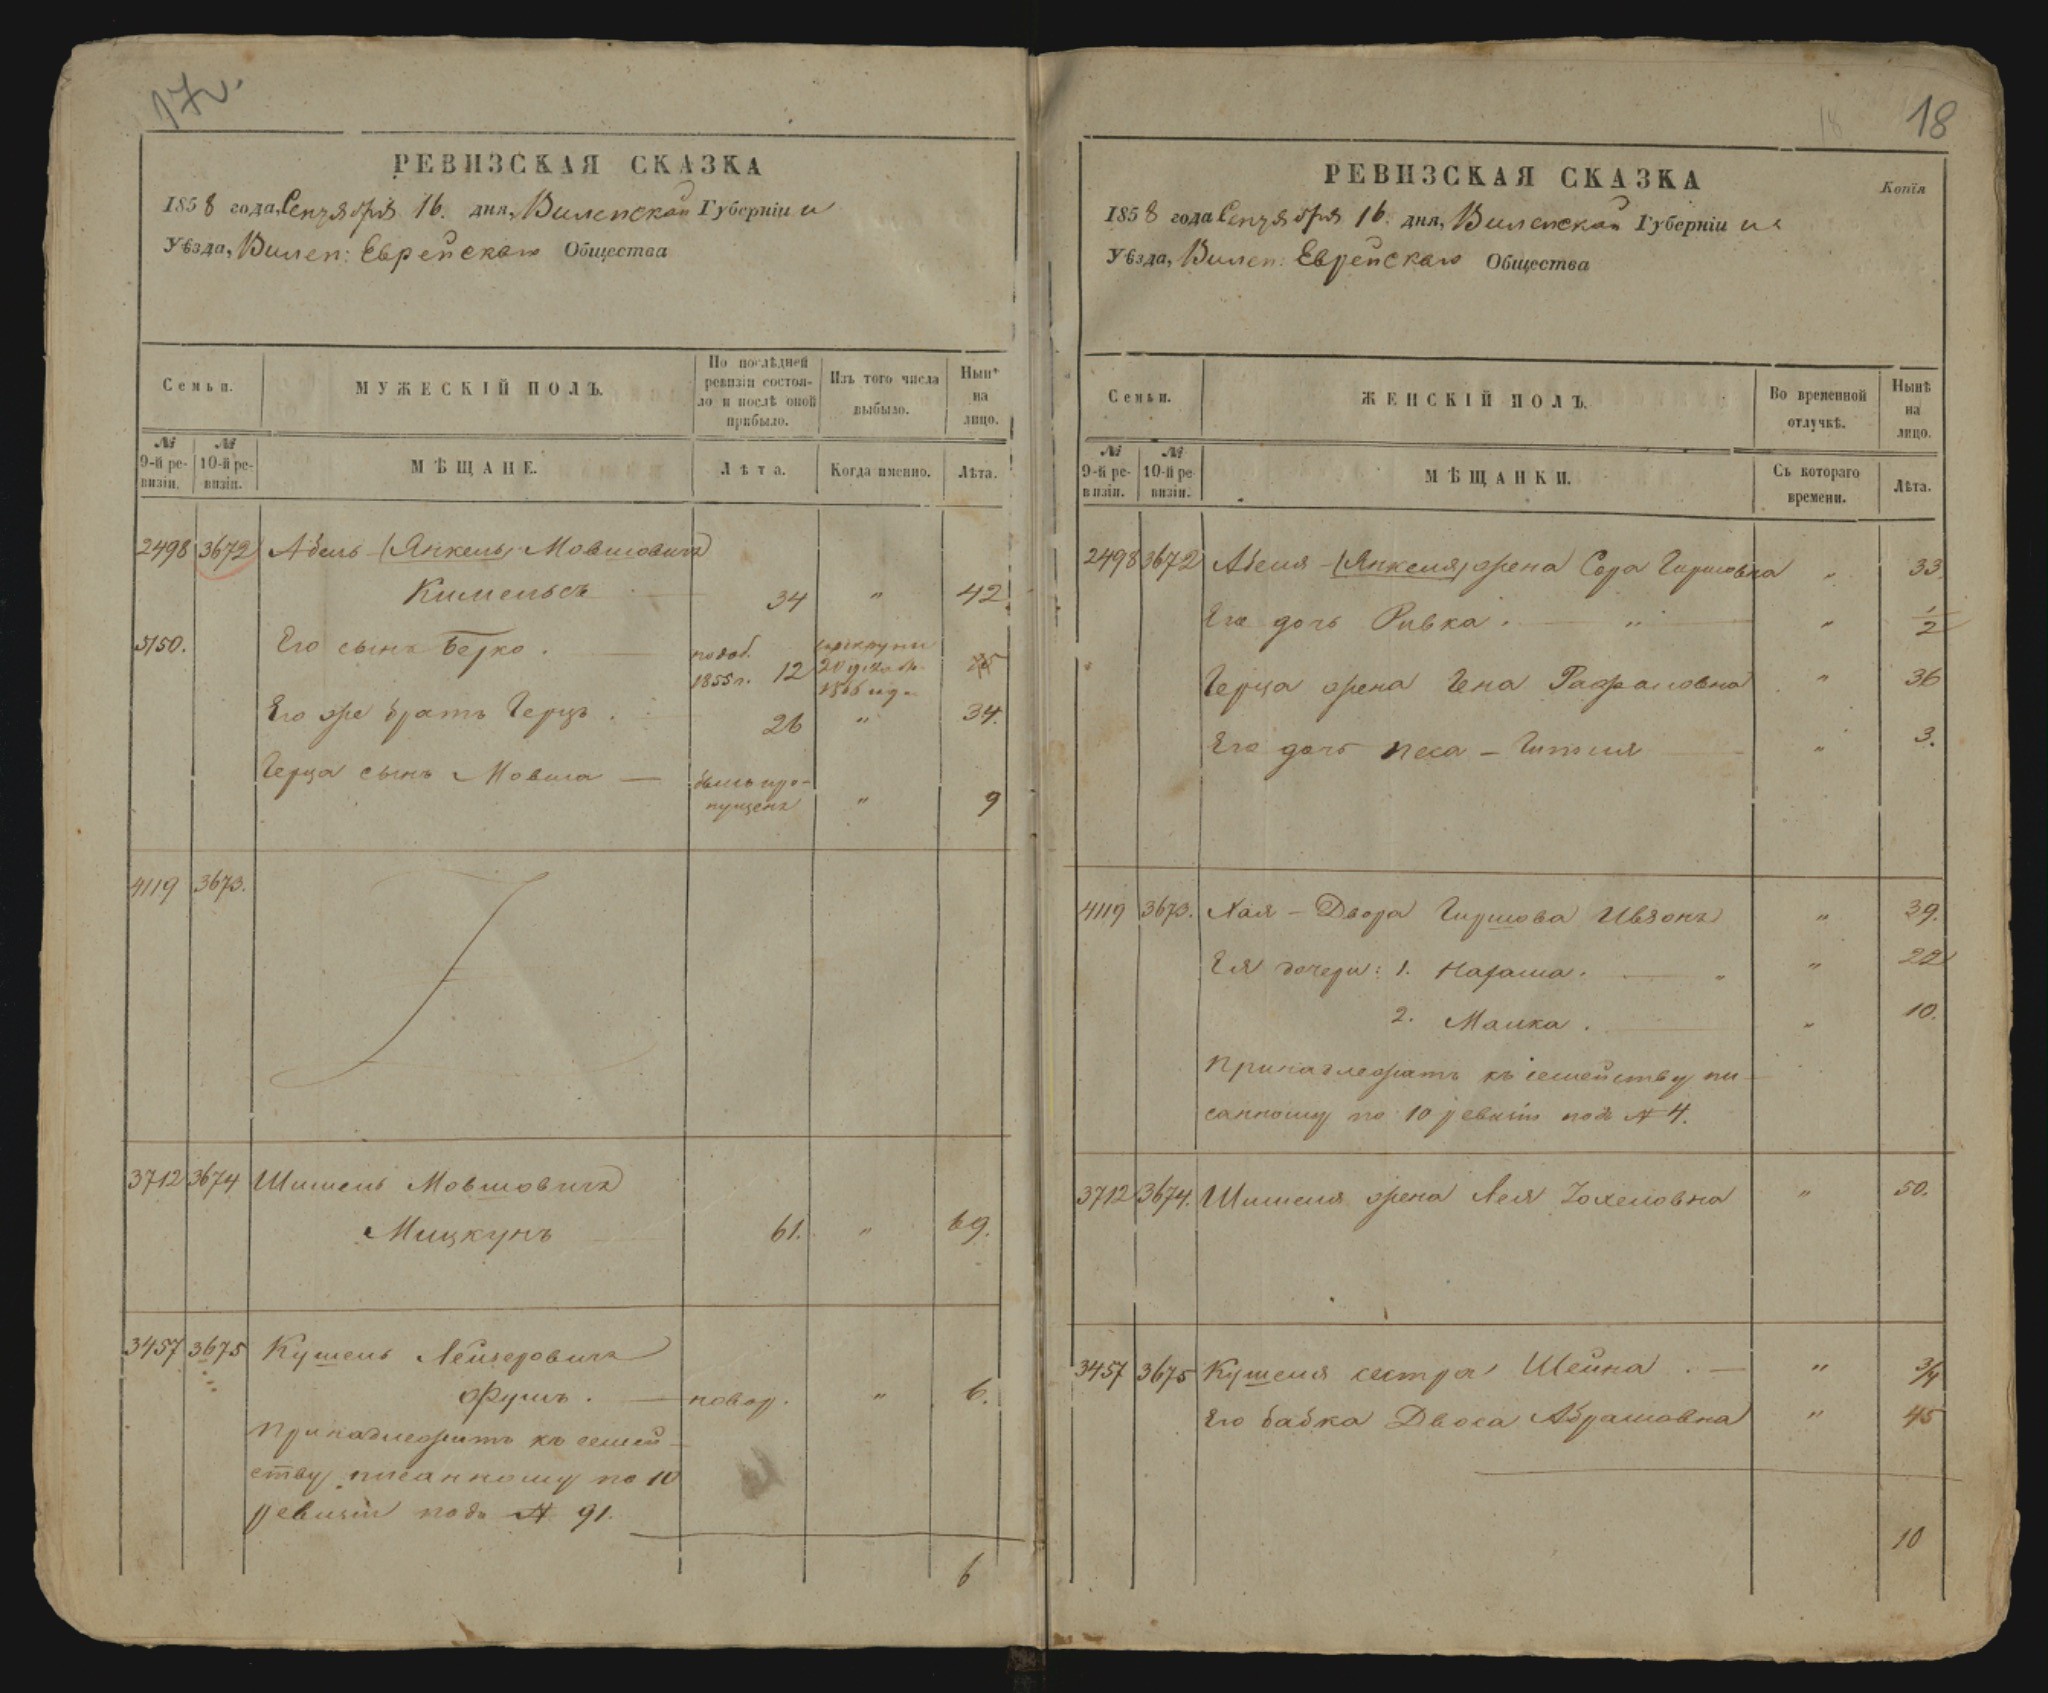 17v.
РЕВИЗСКАЯ СКАЗКА
1858 года, Сентября 16. дня, Виленской Губерніи и
Уѣзда, Вилен: Еврейскаго Общества
Семьи.
МУЖЕСКІЙ ПОЛЪ.
По послѣдней ревизіи состояло и послѣ оной прибыло.
Изъ того числа выбыло.
Нынѣ на лицо.
№ 9-й ревизіи.
№ 10-й ревизіи.
МѢЩАНЕ.
Лѣта.
Когда именно.
Лѣта.
2498 3672 Абель-(Янкель) Мовшовичъ
Кимельсъ 34 " 42.
5150. Его сынъ Берко. 1855 г. 12
Его же братъ Герцъ. 26 " 34.
Герца сынъ Мовша — былъ про-
пущенъ " 9
4119 3673.
3712 3674 Шимель Мовшовичъ
Мицкунъ 61. " 69.
3457 3675 Кушель Лейзеровичъ
Фушъ. — новор. " 6.
Принадлежитъ къ семей-
ству писанному по 10
ревизіи подъ № 91.
6
18
18
РЕВИЗСКАЯ СКАЗКА
Копія
1858 года Сентября 16. дня, Виленской Губерніи и
Уѣзда, Вилен: Еврейскаго Общества
Семьи.
ЖЕНСКІЙ ПОЛЪ.
Во временной отлучкѣ.
Нынѣ на лицо.
№ 9-й ревизіи.
№ 10-й ревизіи.
МѢЩАНКИ.
Съ котораго времени.
Лѣта.
2498 3672 Абеля-(Янкеля) жена Сора Гиршовна " 33.
Его дочь Ривка. — " — " 1/2
Герца жена Гена Рафаловна " 36
Его дочь Песа-Гитля " 3.
4119 3673. Хая-Двора Гиршова Ивзонъ " 39.
Ея дочери: 1. " 22
2. Малка. " 10.
Принадлежатъ къ семейству пи-
санному по 10 ревизіи подъ № 4.
3712 3674. Шимеля жена Лея Іохеловна " 50.
3457 3675 Кушеля сестра Шейна. — " 3/4
Его бабка Двоса Абрамовна " 45
10